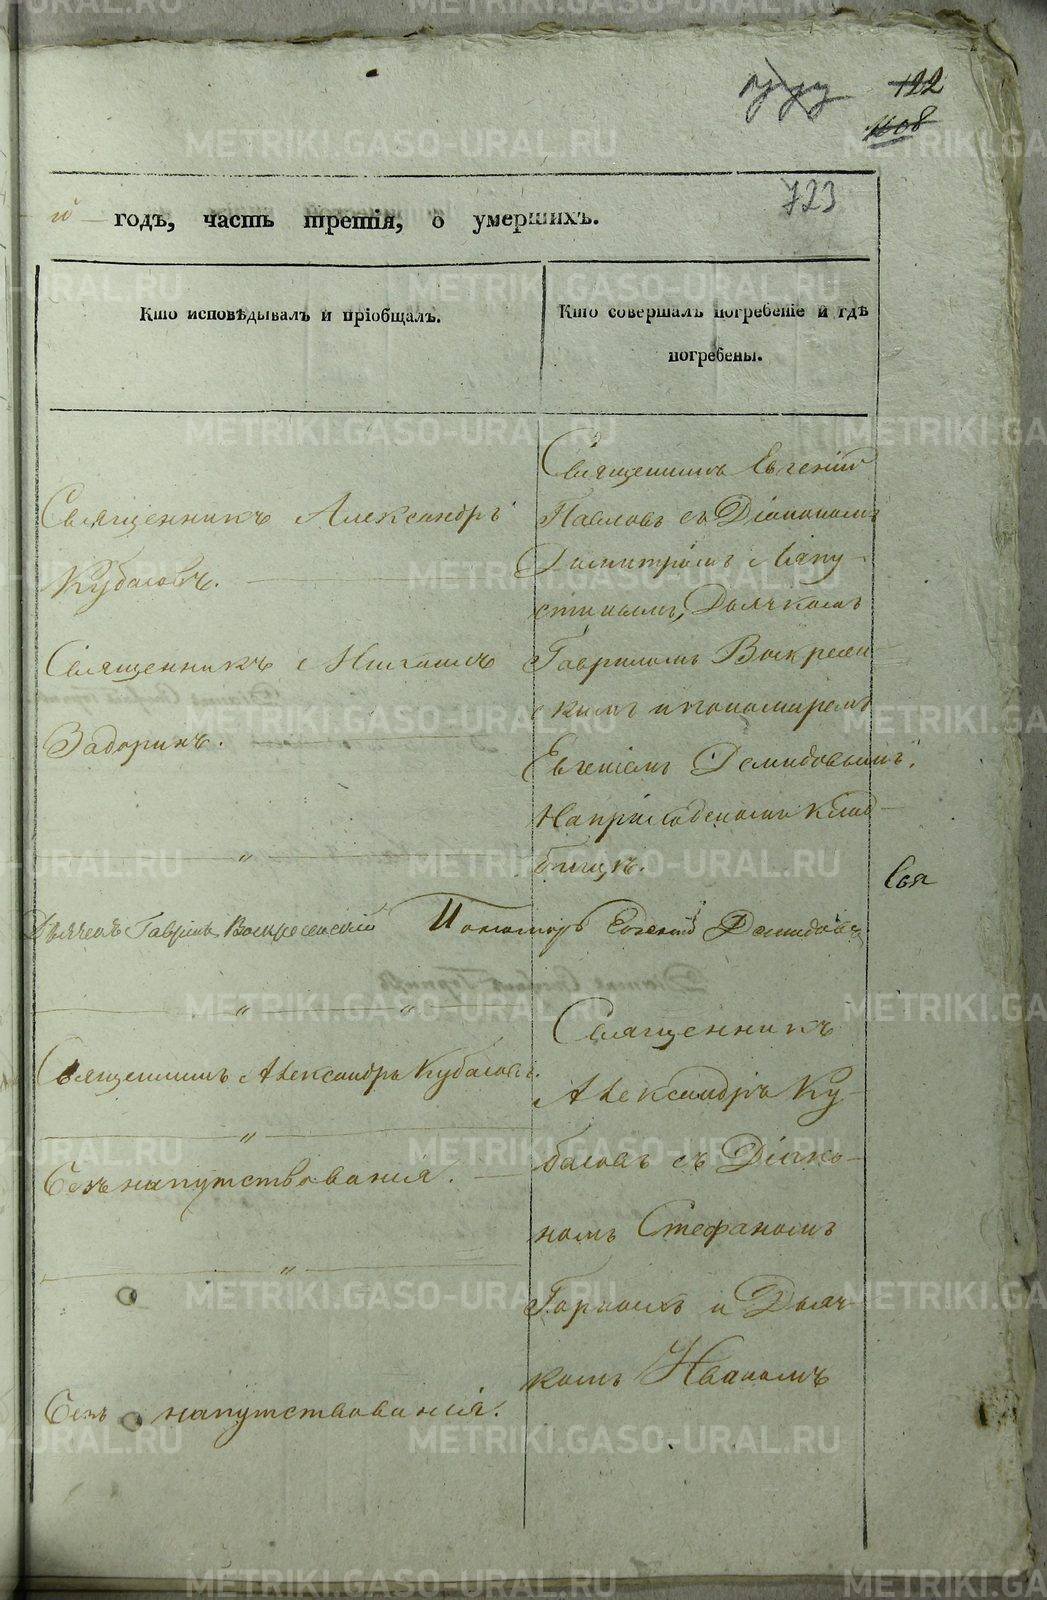 122
1108
723
й годъ, часть третія, о умершихъ.
Кто исповѣдывалъ и пріобщалъ.
Кто совершалъ погребеніе и гдѣ
погребены.
Священникъ Александръ
Кубасовъ.
Священникъ Михаилъ
Задоринъ.
"
Священникъ Евгеній
Павловъ съ Діакономъ
Димитріемъ Ляпу-
стинымъ, Дьячкомъ
Гавриломъ Воскресен-
скимъ и пономаремъ
Евгеніемъ Демидовымъ.
На приходскомъ клад-
бищѣ.
Свя
Дьячекъ Гаврилъ Воскресенскій Пономарь Евгеній Демидовъ
" "
Священникъ Александръ Кубасовъ.
"
Безъ напутствованія.
"
Безъ напутствованія.
Священникъ
Александръ Ку-
басовъ съ Діако-
номъ Стефаномъ
Горныхъ и Дьяч-
комъ Иваномъ
METRIKI.GASO-URAL.RU